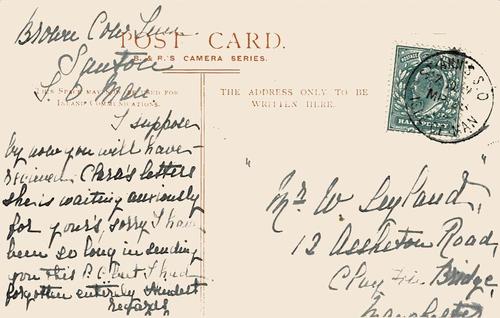 Brown Cow Inn
POST CARD.
B. & R.'S CAMERA SERIES.
Santon
THIS SPACE MAY BE USED FOR
INLAND COMMUNICATIONS.
THE ADDRESS ONLY TO BE
WRITTEN HERE.
I suppose
by now you will have
received Clara's letters
she is waiting anxiously
for your's, sorry I have
been so long in sending
you this P.C. but I had
forgotten entirely Kindest
Regards
Mr W Leyland,
12 Assheton Road,
Clayton Bridge,
Manchester